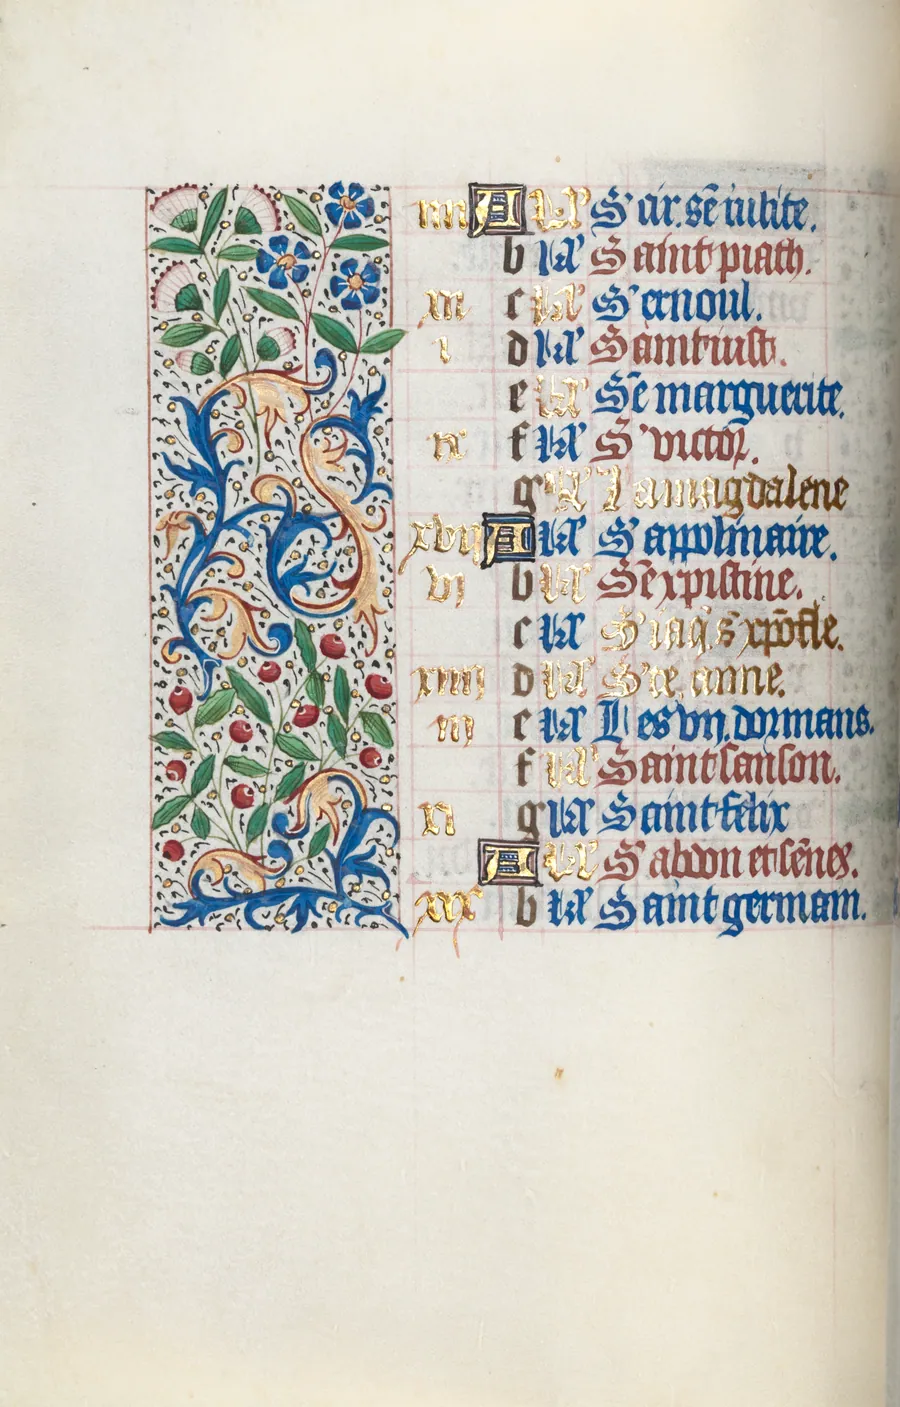 iiii A kł S' cir. sẽ iulite.
b kł Saint piath.
xii c kł S' ernoul.
i d kł Saint iust.
e kł Sẽ marguerite.
ix f kł S' victor.
g kł La magdalene
xvii A kł S' appolinaire.
vi b kł Sẽ xpistine.
c kł S' iaq̃. s̃ xp̃ofle.
xiiii d kł S'te. anne.
iii e kł Les vii. dormans.
f kł Saint sanson.
xi g kł Saint felix
A kł S' abdon et sẽnes.
xix b kł Saint germain.